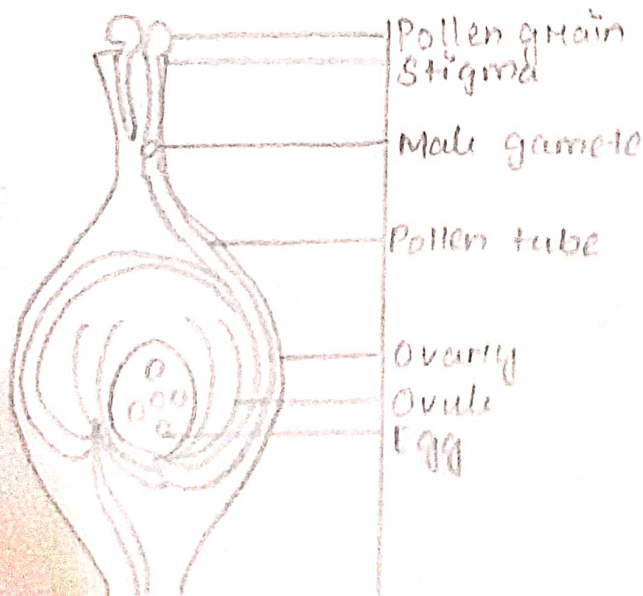 Pollen grain
Stigma
Male gamete
Pollen tube
Ovary
Ovule
Egg